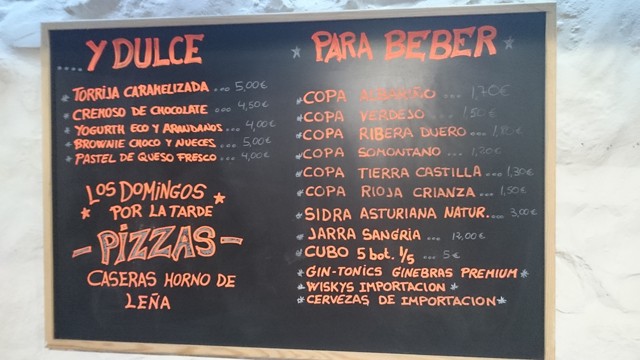 ....Y DULCE
* TORRIJA CARAMELIZADA ... 5,00€
* CREMOSO DE CHOCOLATE ... 4,50€
* YOGURTH ECO Y ARANDANOS ... 4,00€
* BROWNIE CHOCO Y NUECES ... 5,00€
* PASTEL DE QUESO FRESCO ... 4,00€
LOS DOMINGOS
POR LA TARDE
- PIZZAS -
CASERAS HORNO DE
LEÑA
* PARA BEBER *
* COPA ALBARIÑO ... 1,70€
* COPA VERDEJO ...
* COPA RIBERA DUERO ...
* COPA SOMONTANO ... 1,20€
* COPA TIERRA CASTILLA ... 1,30€
* COPA RIOJA CRIANZA ... 1,50€
* SIDRA ASTURIANA NATUR... 3,00€
* JARRA SANGRIA ... 12,00€
* CUBO 5 bot. 1/5 ... 5€
* GIN-TONICS GINEBRAS PREMIUM *
* WISKYS IMPORTACION *
* CERVEZAS DE IMPORTACION *